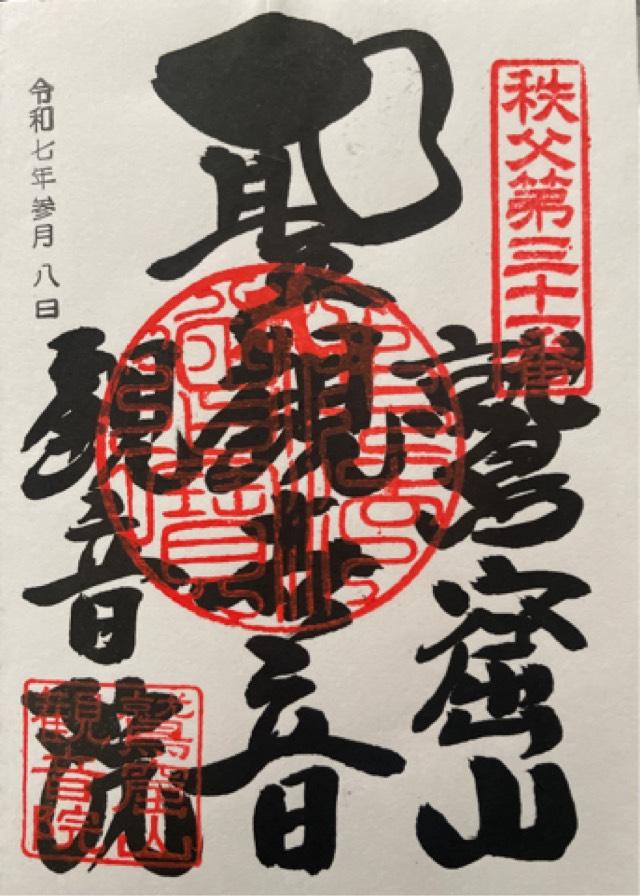 秩父第三十一番
鷲窟山
聖観世音
観音院
令和七年参月八日
鷲窟山
観音院